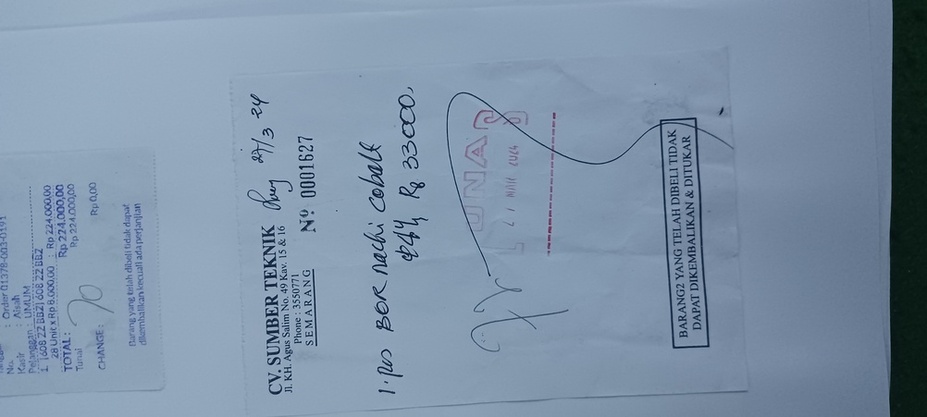 : Order 01378-003-0191
No.
Kasir :
Pelanggan : UMUM
1. 1608 ZZ BB2(1608 ZZ BB2
28 Unit x Rp 8.000,00 : Rp 224.000,00
TOTAL : Rp 224.000,00
Tunai Rp 224.000,00
CHANGE : Rp 0,00
Barang yang telah dibeli tidak dapat
dikembalikan kecuali ada perjanjian
CV. SUMBER TEKNIK
27/3 24
Jl. KH. Agus Salim No. 49 Kav. 15 & 16
Phone : 3550771
SEMARANG
Nº 0001627
1. pcs BOR nachi cobalt
Rp 33000,
LUNAS
BARANG2 YANG TELAH DIBELI TIDAK
DAPAT DIKEMBALIKAN & DITUKAR